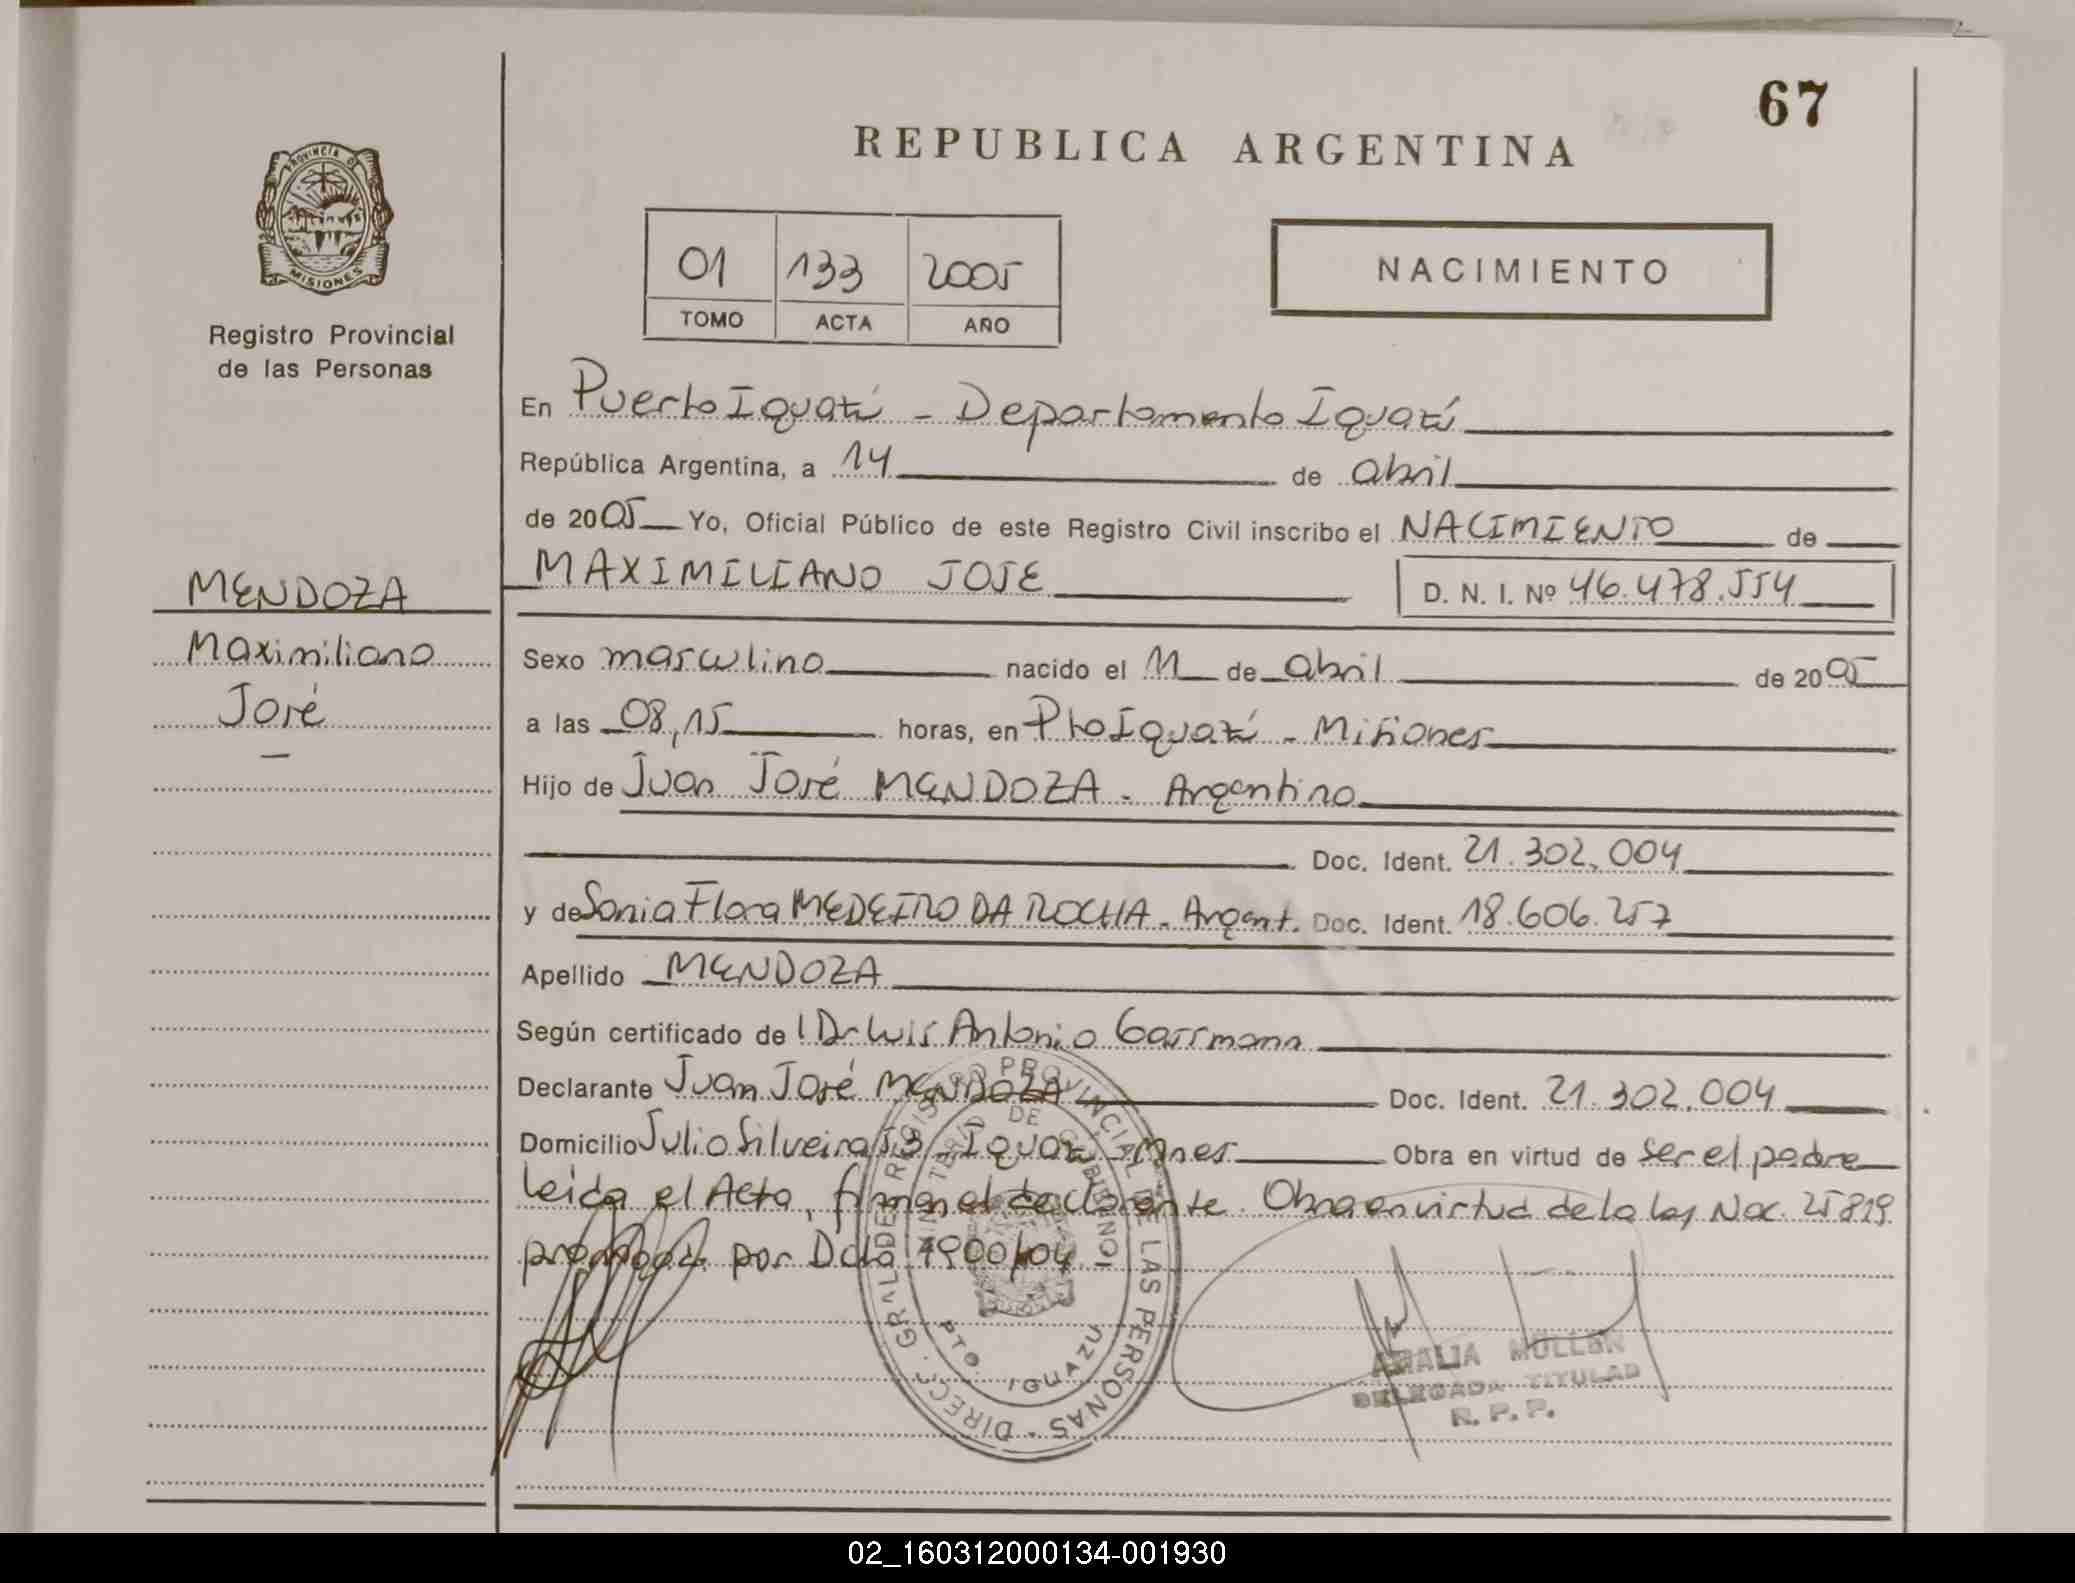 67
REPUBLICA ARGENTINA
PROVINCIA DE
MISIONES
Registro Provincial
de las Personas
01 133 2005
TOMO ACTA AÑO
NACIMIENTO
En Puerto Iguazú - Departamento Iguazú
República Argentina, a 14 de abril
de 2005 Yo, Oficial Público de este Registro Civil inscribo el NACIMIENTO de
MAXIMILIANO JOSE D. N. I. Nº 46.478.554
MENDOZA
Maximiliano
José
Sexo masculino nacido el 11 de abril de 2005
a las 08,15 horas, en Pto Iguazú - Misiones
Hijo de Juan José MENDOZA - Argentino
Doc. Ident. 21.302.004
y de Sonia Flora MEDEIRO DA ROCHA - Argent. Doc. Ident. 18.606.257
Apellido MENDOZA
Según certificado de l Dr Luis Antonio Gassmann
Declarante Juan José MENDOZA Doc. Ident. 21.302.004
Domicilio Julio Silveira Iguazú - Mnes Obra en virtud de ser el padre
leída el Acta, firman el declarante. Obra en virtud de la ley Nac. 25819
por Dcto 1900/04
DIRECC. GRAL DE REGISTRO PROVINCIAL DE LAS PERSONAS
MINISTERIO DE GOBIERNO
PTO. IGUAZU
AMALIA MULLER
DELEGADA TITULAR
R. P. P.
02_160312000134-001930